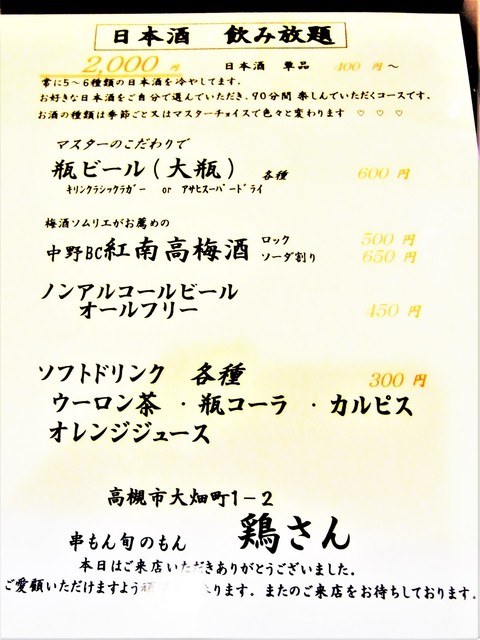 日本酒 飲み放題
2,000 円 日本酒 単品 400 円～
常に5～6種類の日本酒を冷やしてます。
お好きな日本酒をご自分で選んでいただき、90分間 楽しんでいただくコースです。
お酒の種類は季節ごと又はマスターチョイスで色々と変わります ♡ ♡ ♡
マスターのこだわりで
瓶ビール(大瓶) 各種 600 円
キリンクラシックラガー or アサヒスーパードライ
梅酒ソムリエがお薦めの
中野BC紅南高梅酒 ロック 500 円
ソーダ割り 650 円
ノンアルコールビール
オールフリー 450 円
ソフトドリンク 各種 300 円
ウーロン茶 ・瓶コーラ ・カルピス
オレンジジュース
高槻市大畑町1－2
串もん旬のもん 鶏さん
本日はご来店いただきありがとうございました。
ご愛顧いただけますよう ります。またのご来店をお待ちしております。